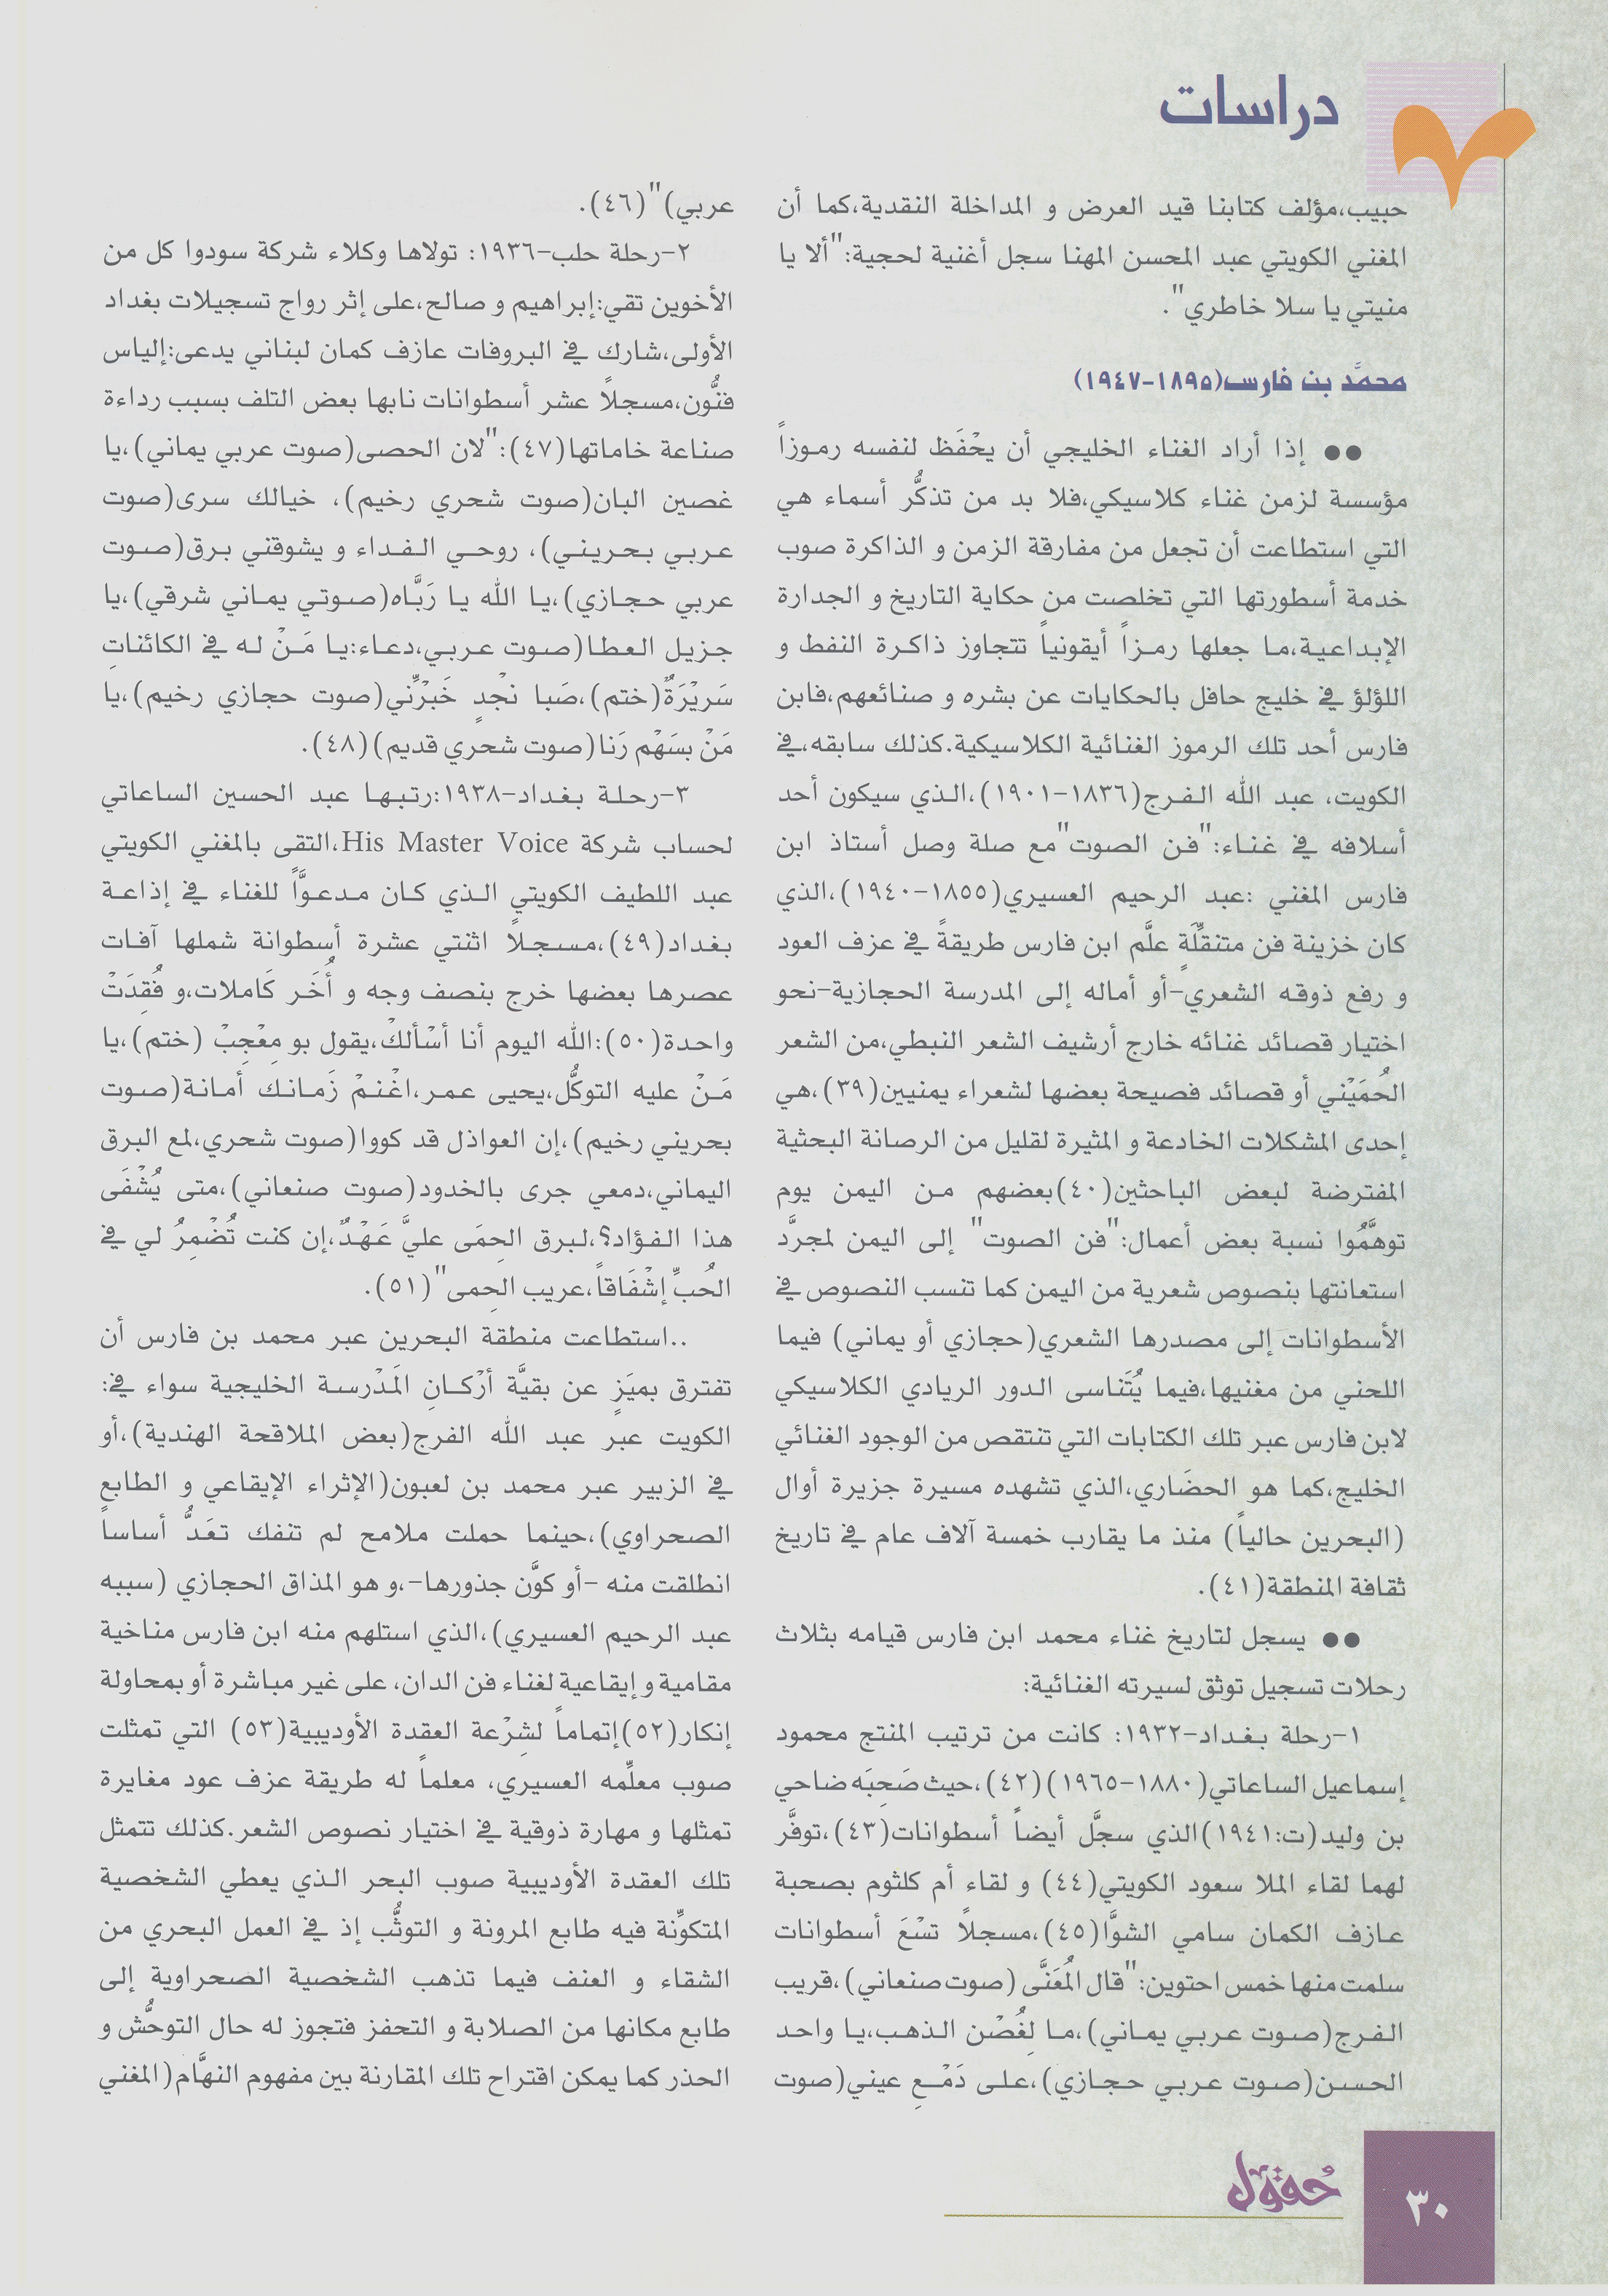 دراسات
حبيب،مؤلف كتابنا قيد العرض و المداخلة النقدية،كما أن
المغني الكويتي عبد المحسن المهنا سجل أغنية لحجية:"ألا يا
منيتي يا سلا خاطري".
محمَّد بن فارس(١٨٩٥-١٩٤٧)
●● إذا أراد الغناء الخليجي أن يحْفَظ لنفسه رموزاً
مؤسسة لزمن غناء كلاسيكي،فلا بد من تذكُّر أسماء هي
التي استطاعت أن تجعل من مفارقة الزمن و الذاكرة صوب
خدمة أسطورتها التي تخلصت من حكاية التاريخ و الجدارة
الإبداعية،ما جعلها رمزاً أيقونياً تتجاوز ذاكرة النفط و
اللؤلؤ في خليج حافل بالحكايات عن بشره و صنائعهم،فابن
فارس أحد تلك الرموز الغنائية الكلاسيكية.كذلك سابقه،في
الكويت، عبد الله الفرج(١٨٣٦-١٩٠١)،الذي سيكون أحد
أسلافه في غناء:"فن الصوت"مع صلة وصل أستاذ ابن
فارس المغني :عبد الرحيم العسيري(١٨٥٥-١٩٤٠)،الذي
كان خزينة فن متنقِّلَةٍ علَّم ابن فارس طريقةً في عزف العود
و رفع ذوقه الشعري-أو أماله إلى المدرسة الحجازية-نحو
اختيار قصائد غنائه خارج أرشيف الشعر النبطي،من الشعر
الحُمَيْني أو قصائد فصيحة بعضها لشعراء يمنيين(٣٩)،هي
إحدى المشكلات الخادعة و المثيرة لقليل من الرصانة البحثية
المفترضة لبعض الباحثين(٤٠)بعضهم من اليمن يوم
توهَّمُوا نسبة بعض أعمال:"فن الصوت" إلى اليمن لمجرَّد
استعانتها بنصوص شعرية من اليمن كما تنسب النصوص في
الأسطوانات إلى مصدرها الشعري(حجازي أو يماني) فيما
اللحني من مغنيها،فيما يُتَناسى الدور الريادي الكلاسيكي
لابن فارس عبر تلك الكتابات التي تنتقص من الوجود الغنائي
الخليج،كما هو الحضَاري،الذي تشهده مسيرة جزيرة أوال
(البحرين حالياً) منذ ما يقارب خمسة آلاف عام في تاريخ
ثقافة المنطقة(٤١).
●● يسجل لتاريخ غناء محمد ابن فارس قيامه بثلاث
رحلات تسجيل توثق لسيرته الغنائية:
١-رحلة بغداد-١٩٣٢: كانت من ترتيب المنتج محمود
إسماعيل الساعاتي(١٨٨٠-١٩٦٥)(٤٢)،حيث صَحِبَه ضاحي
بن وليد(ت:١٩٤١)الذي سجَّل أيضاً أسطوانات(٤٣)،توفَّر
لهما لقاء الملا سعود الكويتي(٤٤) و لقاء أم كلثوم بصحبة
عازف الكمان سامي الشوَّا(٤٥)،مسجلاً تسْعَ أسطوانات
سلمت منها خمس احتوين:"قال المُعَنَّى (صوت صنعاني)،قريب
الفرج(صوت عربي يماني)،ما لِغُصْن الذهب،يا واحد
الحسن(صوت عربي حجازي)،على دَمْعِ عيني(صوت
عربي)"(٤٦).
٢-رحلة حلب-١٩٣٦: تولاها وكلاء شركة سودوا كل من
الأخوين تقي:إبراهيم و صالح،على إثر رواج تسجيلات بغداد
الأولى،شارك في البروفات عازف كمان لبناني يدعى:إلياس
فنُّون،مسجلاً عشر أسطوانات نابها بعض التلف بسبب رداءة
صناعة خاماتها(٤٧):"لان الحصى(صوت عربي يماني)،يا
غصين البان(صوت شحري رخيم)، خيالك سرى(صوت
عربي بحريني)، روحي الفداء و يشوقني برق(صوت
عربي حجازي)،يا الله يا رَبَّاه(صوتي يماني شرقي)،يا
جزيل العطا(صوت عربي،دعاء:يا مَنْ له في الكائناتِ
سَريْرَةٌ(ختم)،صَبا نجْدٍ خَبرِّني(صوت حجازي رخيم)،يا
مَنْ بسَهْم رَنا(صوت شحري قديم)(٤٨).
٣-رحلة بغداد-١٩٣٨:رتبها عبد الحسين الساعاتي
لحساب شركة His Master Voice،التقى بالمغني الكويتي
عبد اللطيف الكويتي الذي كان مدعوَّاً للغناء في إذاعة
بغداد(٤٩)،مسجلاً اثنتي عشرة أسطوانة شملها آفات
عصرها بعضها خرج بنصف وجه و أُخَر كَاملات،و فُقِدَتْ
واحدة(٥٠):الله اليوم أنا أسْألكْ،يقول بو مِعْجِبْ (ختم)،يا
مَنْ عليه التوكُّل،يحيى عمر،اغْنمْ زَمانك أمانة(صوت
بحريني رخيم)،إن العواذل قد كووا(صوت شحري،لمع البرق
اليماني،دمعي جرى بالخدود(صوت صنعاني)،متى يُشْفَى
هذا الفؤاد؟،لبرق الحِمَى عليَّ عَهْدٌ،إن كنت تُضْمِرُ لي في
الحُبِّ إشْفَاقاً،عريب الحِمى"(٥١).
..استطاعت منطقة البحرين عبر محمد بن فارس أن
تفترق بميَزٍ عن بقيَّة أرْكانِ المَدْرسة الخليجية سواء في:
الكويت عبر عبد الله الفرج(بعض الملاقحة الهندية)،أو
في الزبير عبر محمد بن لعبون(الإثراء الإيقاعي و الطابع
الصحراوي)،حينما حملت ملامح لم تنفك تعَدُّ أساساً
انطلقت منه -أو كوَّن جذورها-،و هو المذاق الحجازي (سببه
عبد الرحيم العسيري)،الذي استلهم منه ابن فارس مناخية
مقامية و إيقاعية لغناء فن الدان، على غير مباشرة أو بمحاولة
إنكار(٥٢)إتماماً لشِرْعة العقدة الأوديبية(٥٣) التي تمثلت
صوب معلِّمه العسيري، معلماً له طريقة عزف عود مغايرة
تمثلها و مهارة ذوقية في اختيار نصوص الشعر.كذلك تتمثل
تلك العقدة الأوديبية صوب البحر الذي يعطي الشخصية
المتكوِّنة فيه طابع المرونة و التوثُّب إذ في العمل البحري من
الشقاء و العنف فيما تذهب الشخصية الصحراوية إلى
طابع مكانها من الصلابة و التحفز فتجوز له حال التوحُّش و
الحذر كما يمكن اقتراح تلك المقارنة بين مفهوم النهَّام(المغني
حُقول
٣٠